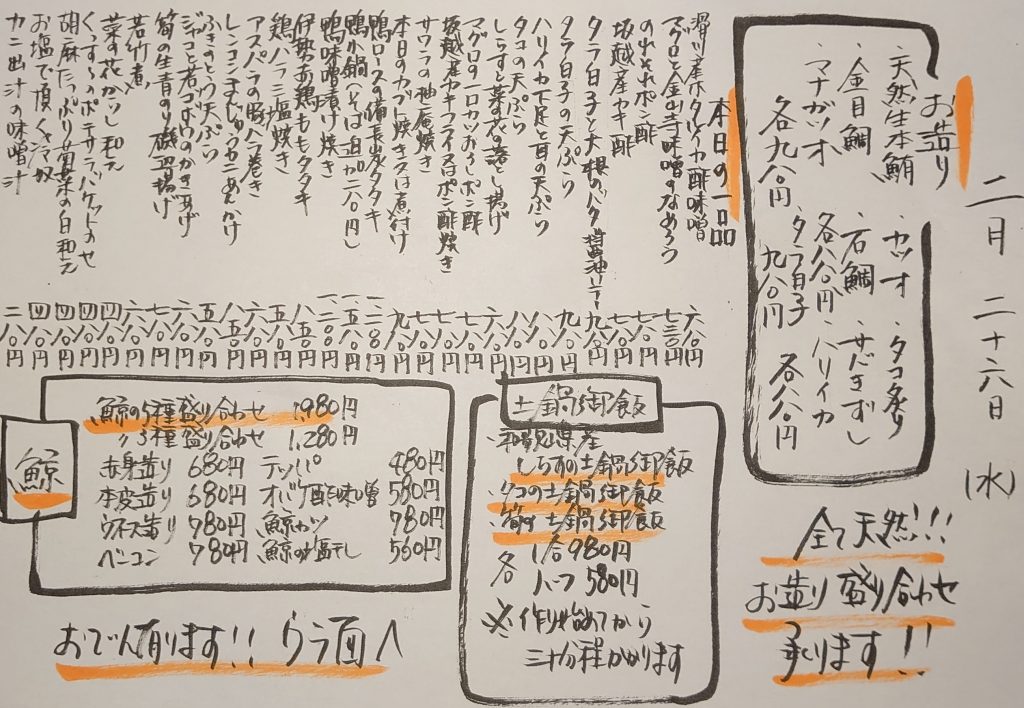 二月 二十六日 (水)
お造り
・天然生本鮪
・金目鯛
・マナガツオ
各九八〇円
・カツオ
・石鯛
各八八〇円
・タラ白子
九八〇円
・タコ炙り
・サバきずし
・ハリイカ
各八八〇円
全て天然!!!
お造り盛り合わせ
承ります!!
本日の一品
滑川産ホタルイカ酢味噌 六八〇円
マグロと金山寺味噌のなめろう 七三〇円
のれそれポン酢 八八〇円
坂越産カキ酢 七八〇円
タラ白子と大根のバタ醤油ソテー 九八〇円
タラ白子の天ぷら 九八〇円
ハリイカ下足と耳の天ぷら 八八〇円
タコの天ぷら 八八〇円
しらすと菜の花の落とし揚げ 六八〇円
マグロの一口カツおろしポン酢 七八〇円
坂越産カキフライ又はポン酢焼き 七八〇円
サワラの柚庵焼き 七八〇円
本日のカブト焼き又は煮付け 九八〇円
鴨ロースの備長炭タタキ 一二八〇円
鴨小鍋(そば追加二八〇円) 一五八〇円
鴨味噌漬け焼き 一二八〇円
伊勢赤鶏ももタタキ 八五〇円
鶏ハラミ塩焼き 六八〇円
アスパラの豚バラ巻き 八五〇円
レンコンまんじゅうカニあんかけ 五八〇円
ふきのとう天ぷら 六八〇円
ジャコと若ゴボウのかき揚げ 七八〇円
筍の生青のり磯辺揚げ 六八〇円
若竹煮
菜の花からし和え 四八〇円
くんすらのポテサラバケットのせ 四八〇円
胡麻たっぷり菊菜の白和え 四八〇円
お塩で頂く冷奴 四八〇円
カニ出汁の味噌汁 二八〇円
土鍋御飯
・和歌山県産
しらすの土鍋御飯
・タコの土鍋御飯
・筍の土鍋御飯
各 1合 980円
ハーフ 580円
※作り始めてから
三十分程かかります
鯨
鯨の5種盛り合わせ 1,980円
〃 3種盛り合わせ 1,280円
赤身造り 680円 テッパ 480円
本皮造り 680円 オバケ酢味噌 580円
ウネス造り 780円 鯨カツ 780円
ベーコン 780円 鯨の塩干し 560円
おでん有ります!! ウラ面へ